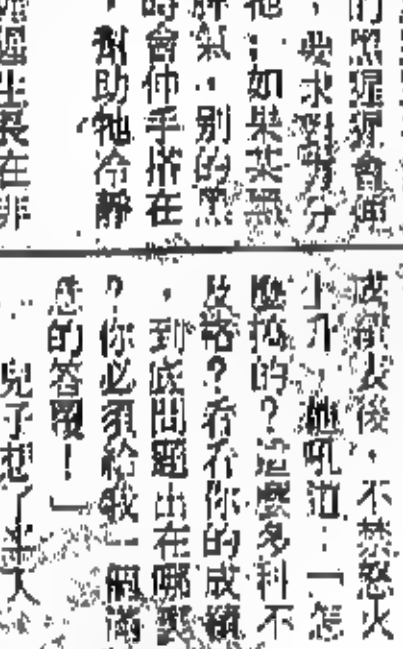 猩猩會面
，要求對方分
如果某頭
脾氣，別的黑
時會伸手搭在
，幫助牠冷靜
生長在非
成績表後，不禁怒火
上升，她吼道：「怎
麼搞的？這麼多科不
及格？看看你的成績
，到底問題出在哪裏
？你必須給我一個滿
意的答覆！」
兒子想了半天